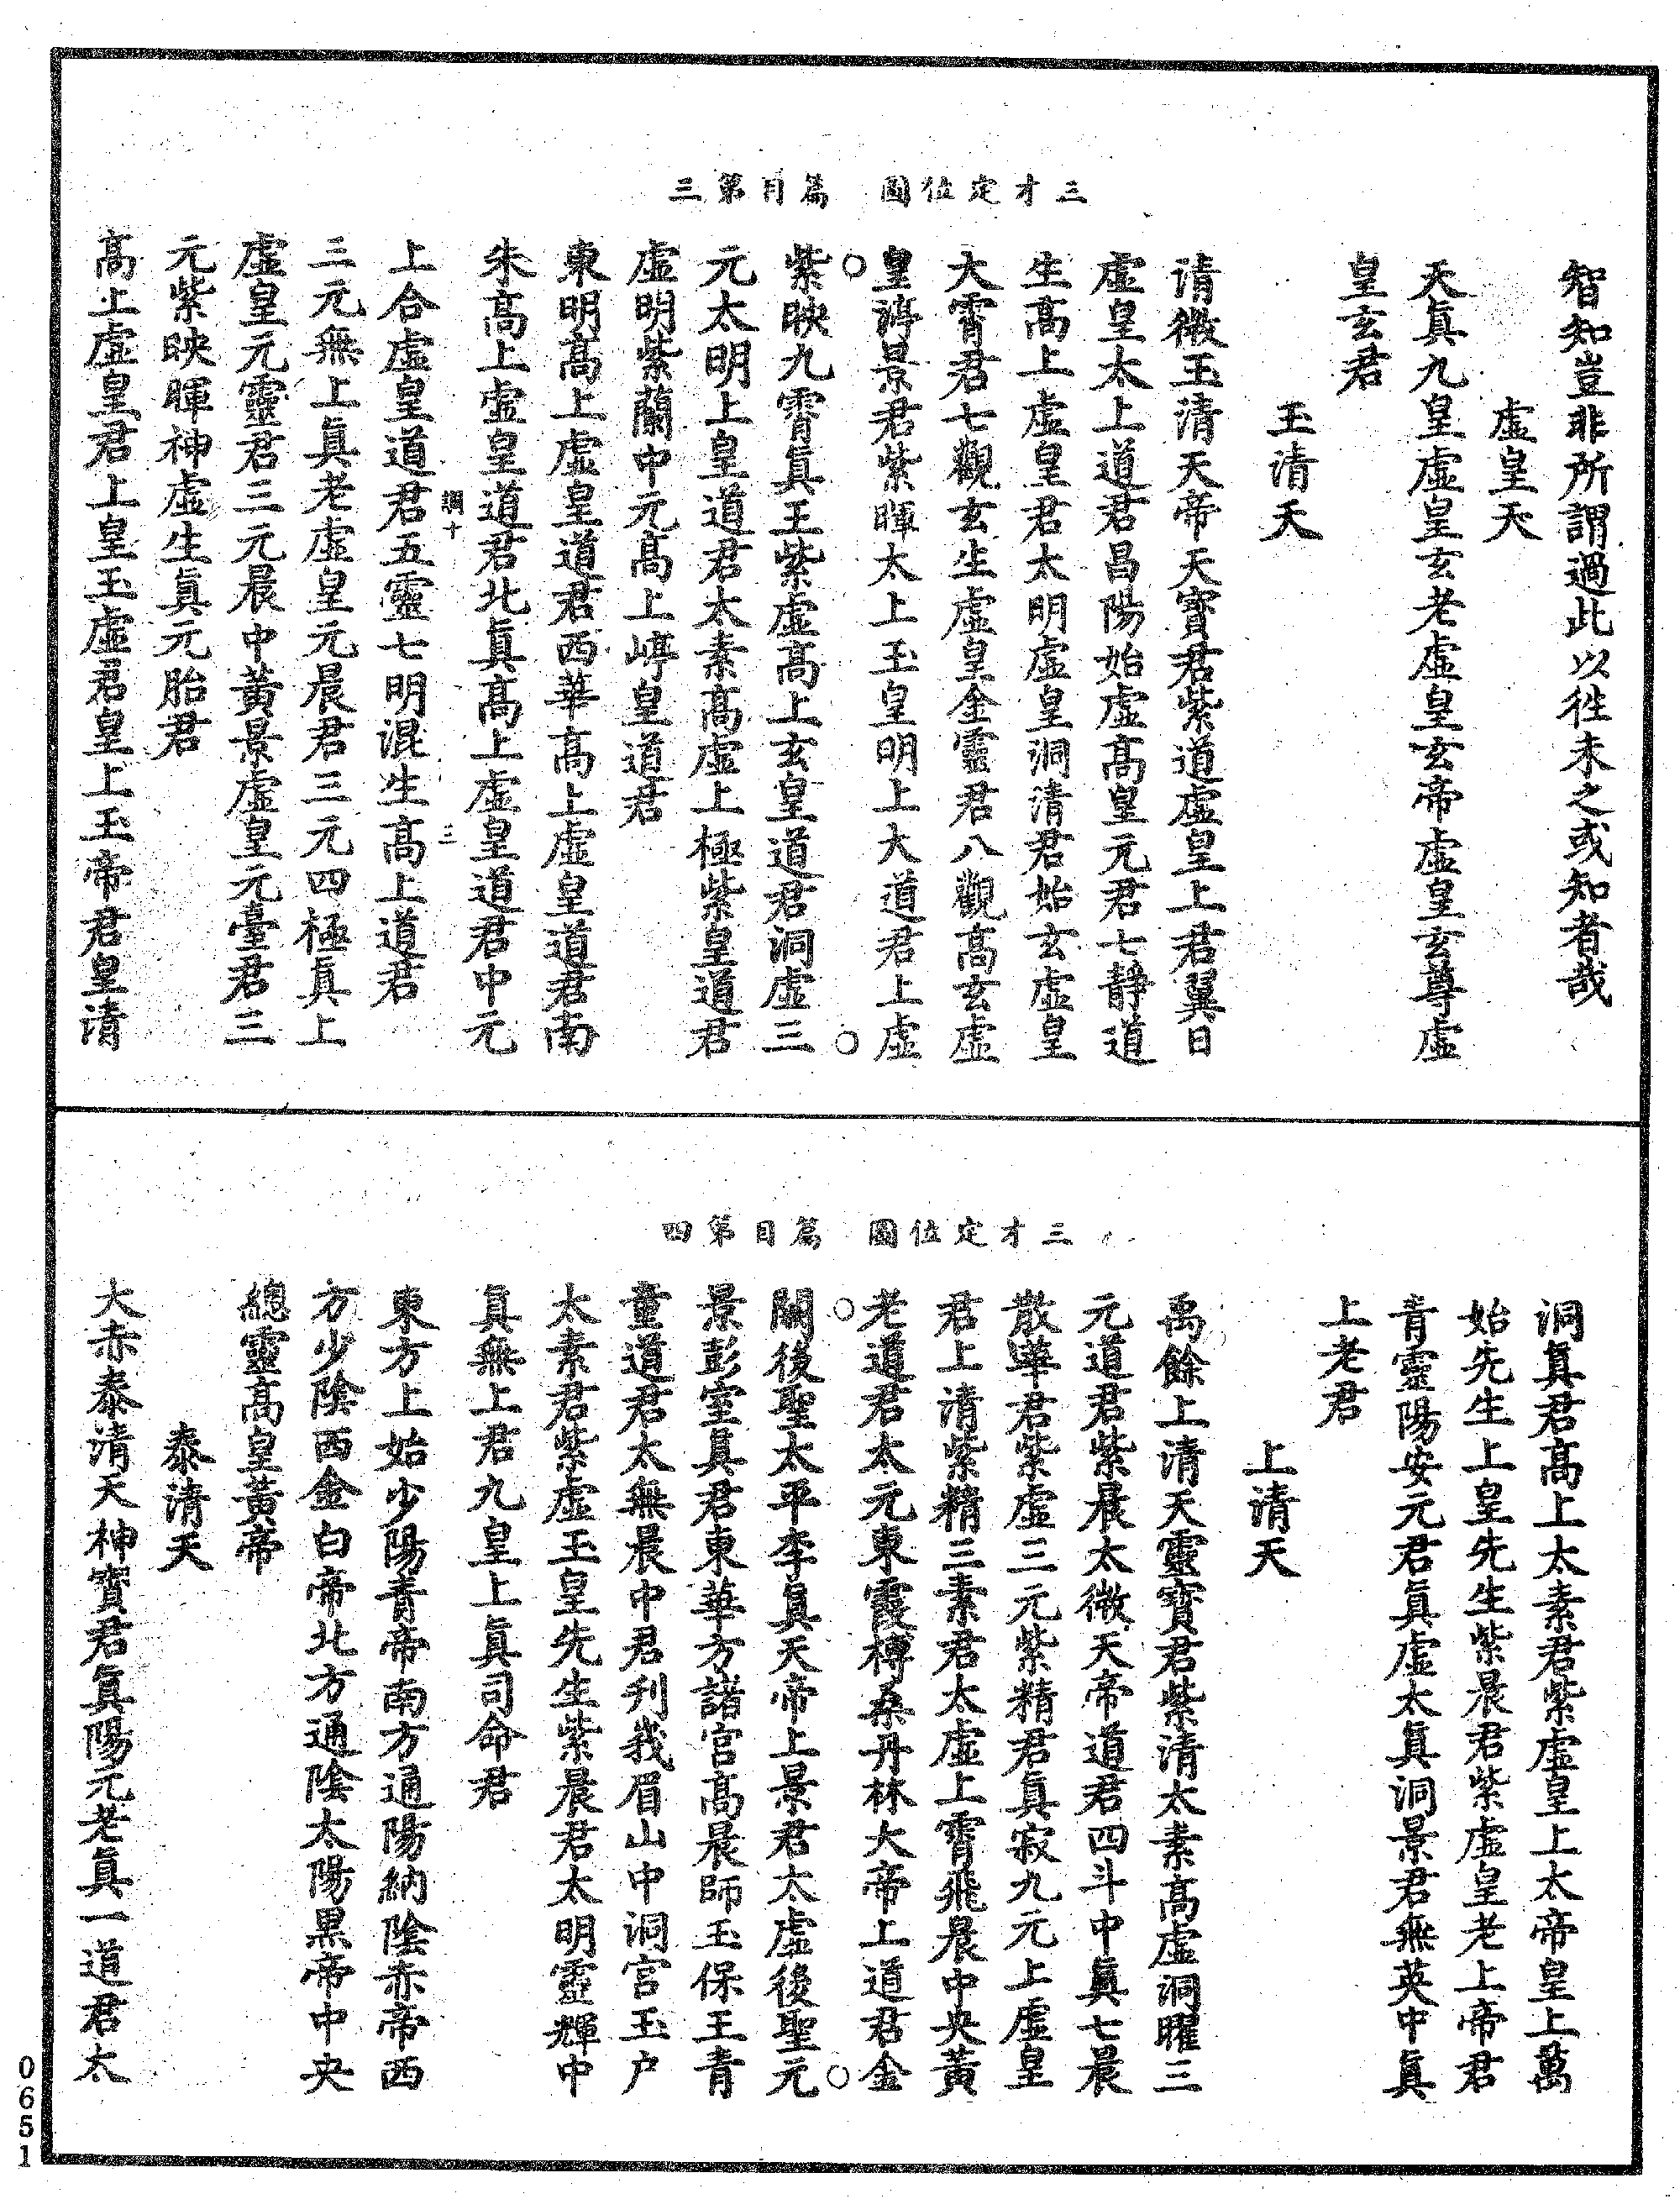 三才定位圖　篇目第三
智知豈非所謂過此以徃未之或知者哉
虛皇天
天眞九皇虛皇玄老虛皇玄帝虛皇玄尊虛
皇玄君
玉清天
清微玉清天帝天寶君紫道虛皇上君翼日
虛皇太上道君昌陽始虛高皇元君七靜道
生高上虛皇君太明虛皇洞清君始玄虛皇
大霄君七觀玄生虛皇金靈君八觀高玄虛
皇渟景君紫暉太上玉皇明上大道君上虛
紫映九霄眞王紫虛高上玄皇道君洞虛三
元太明上皇道君太素高虛上極紫皇道君
虛明紫蘭中元高上崞皇道君
東明高上虛皇道君西華高上虛皇道君南
朱高上虛皇道君北眞高上虛皇道君中元
上合虛皇道君五靈七明混生高上道君
三元無上眞老虛皇元晨君三元四極眞上
虛皇元靈君三元晨中黃景虛皇元臺君三
元紫映暉神虛生眞元胎君
高上虛皇君上皇玉虛君皇上玉帝君皇清
三才定位圖　篇目第四
洞眞君高上太素君紫虛皇上太帝皇上萬
始先生上皇先生紫晨君紫虛皇老上帝君
青靈陽安元君眞虛太眞洞景君無英中眞
上老君
上清天
禹餘上清天靈寶君紫清太素高虛洞曜三
元道君紫晨太微天帝道君四斗中眞七晨
散華君紫虛三元紫精君眞寂九元上虛皇
君上清紫精三素君太虛上霄飛晨中央黃
老道君太元東霞榑桑丹林大帝上道君金
闕後聖太平李眞天帝上景君太虛後聖元
景彭室眞君東華方諸宮高晨師玉保王青
童道君太無晨中君刋峩眉山中洞宮玉户
太素君紫虛玉皇先生紫晨君太明靈輝中
眞無上君九皇上眞司命君
東方上始少陽青帝南方通陽納陰赤帝西
方少陰西金白帝北方通陰太陽黑帝中央
總靈高皇黃帝
泰清天
大赤泰清天神寶君眞陽元老眞一道君太
0651